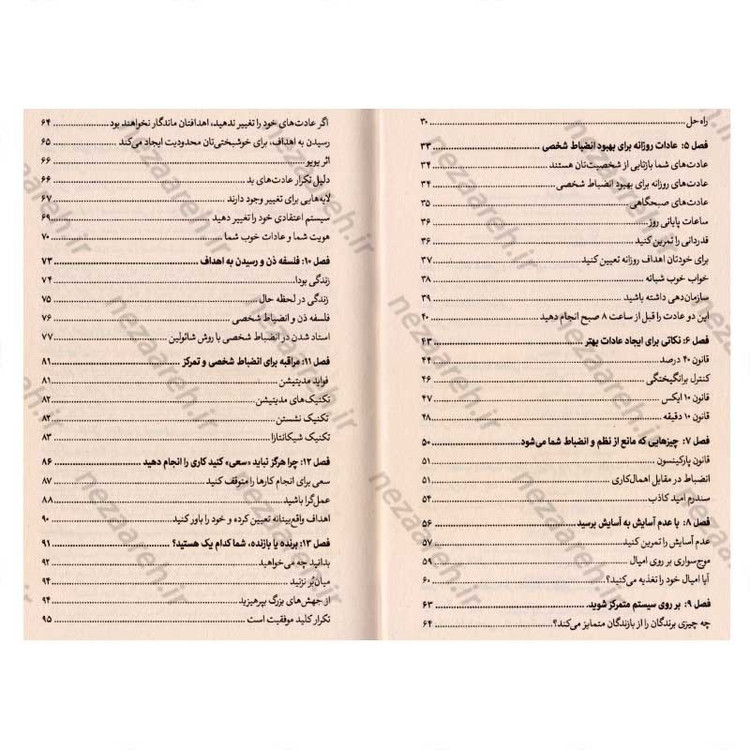 راه حل ۳۰
فصل ۵: عادات روزانه برای بهبود انضباط شخصی ۳۳
عادت‌های شما بازتابی از شخصیت‌تان هستند ۳۴
عادت‌های روزانه برای بهبود انضباط شخصی ۳۴
عادت‌های صبحگاهی ۳۵
ساعات پایانی روز ۳۶
قدردانی را تمرین کنید ۳۶
برای خودتان اهداف روزانه تعیین کنید ۳۷
خواب خوب شبانه ۳۸
سازمان‌دهی داشته باشید ۳۹
این دو عادت را قبل از ساعت ۸ صبح انجام دهید ۴۰
فصل ۶: نکاتی برای ایجاد عادات بهتر ۴۳
قانون ۴۰ درصد ۴۴
کنترل برانگیختگی ۴۶
قانون ۱۰ ایکس ۴۷
قانون ۱۰ دقیقه ۴۸
فصل ۷: چیزهایی که مانع از نظم و انضباط شما می‌شود ۵۰
قانون پارکینسون ۵۱
انضباط در مقابل اهمال‌کاری ۵۱
سندرم امید کاذب ۵۴
فصل ۸: با عدم آسایش به آسایش برسید ۵۶
عدم آسایش را تمرین کنید ۵۷
موج‌سواری بر روی امیال ۵۹
آیا امیال خود را تغذیه می‌کنید؟ ۶۰
فصل ۹: بر روی سیستم متمرکز شوید ۶۳
چه چیزی برندگان را از بازندگان متمایز می‌کند؟ ۶۴
اگر عادت‌های خود را تغییر ندهید، اهدافتان ماندگار نخواهند بود ۶۴
رسیدن به اهداف، برای خوشبختی‌تان محدودیت ایجاد می‌کند ۶۵
اثر یویو ۶۶
دلیل تکرار عادت‌های بد ۶۶
لایه‌هایی برای تغییر وجود دارند ۶۷
سیستم اعتقادی خود را تغییر دهید ۶۹
هویت شما و عادات خوب شما ۷۰
فصل ۱۰: فلسفه ذن و رسیدن به اهداف ۷۳
زندگی بودا ۷۴
زندگی در لحظه حال ۷۵
فلسفه ذن و انضباط شخصی ۷۶
استاد شدن در انضباط شخصی با روش شائولین ۷۷
فصل ۱۱: مراقبه برای انضباط شخصی و تمرکز ۸۱
فواید مدیتیشن ۸۱
تکنیک‌های مدیتیشن ۸۲
تکنیک نشستن ۸۲
تکنیک شیکانتازا ۸۳
فصل ۱۲: چرا هرگز نباید «سعی» کنید کاری را انجام دهید ۸۶
سعی برای انجام کارها را متوقف کنید ۸۷
عمل‌گرا باشید ۸۸
اهداف واقع‌بینانه تعیین کرده و خود را باور کنید ۹۰
فصل ۱۳: برنده یا بازنده، شما کدام یک هستید؟ ۹۱
بدانید چه می‌خواهید ۹۲
میان‌بُر نزنید ۹۴
از جهش‌های بزرگ بپرهیزید ۹۴
تکرار کلید موفقیت است ۹۵
nezaareh.ir